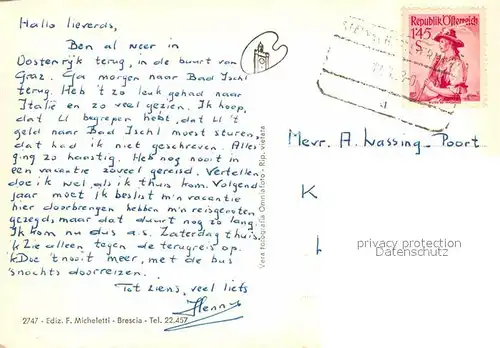 Hallo lieverds,
Ben al weer in
Oostenrijk terug, in de buurt van
Graz. Ga morgen naar Bad Ischl
terug. Heb 't zo leuk gehad naar
Italië en zo veel gezien. Ik hoop,
dat U begrepen hebt, dat U 't
geld naar Bad Ischl moest sturen,
dat had ik niet geschreven. Alles
ging zo haastig. Heb nog nooit in
een vacantie zoveel gereisd. Vertellen
doe ik wel, als ik thuis kom. Volgend
jaar moet ik beslist m'n vacantie
hier doorbrengen hebben m'n reisgenoten
gezegd, maar dat duurt nog zo lang.
Ik kom nu dus a.s. Zaterdag thuis.
'k Zie alleen tegen de terugreis op.
'k Doe 't nooit meer, met de bus
's nachts doorreizen.
Tot ziens, veel liefs
Henny
2747 - Ediz. F. Micheletti - Brescia - Tel. 22.457
Vera fotografia Omniafoto - Rip. vietata
Republik Österreich
1.45
S
Mevr. A. Wassing-Poort
K
privacy protection
Datenschutz